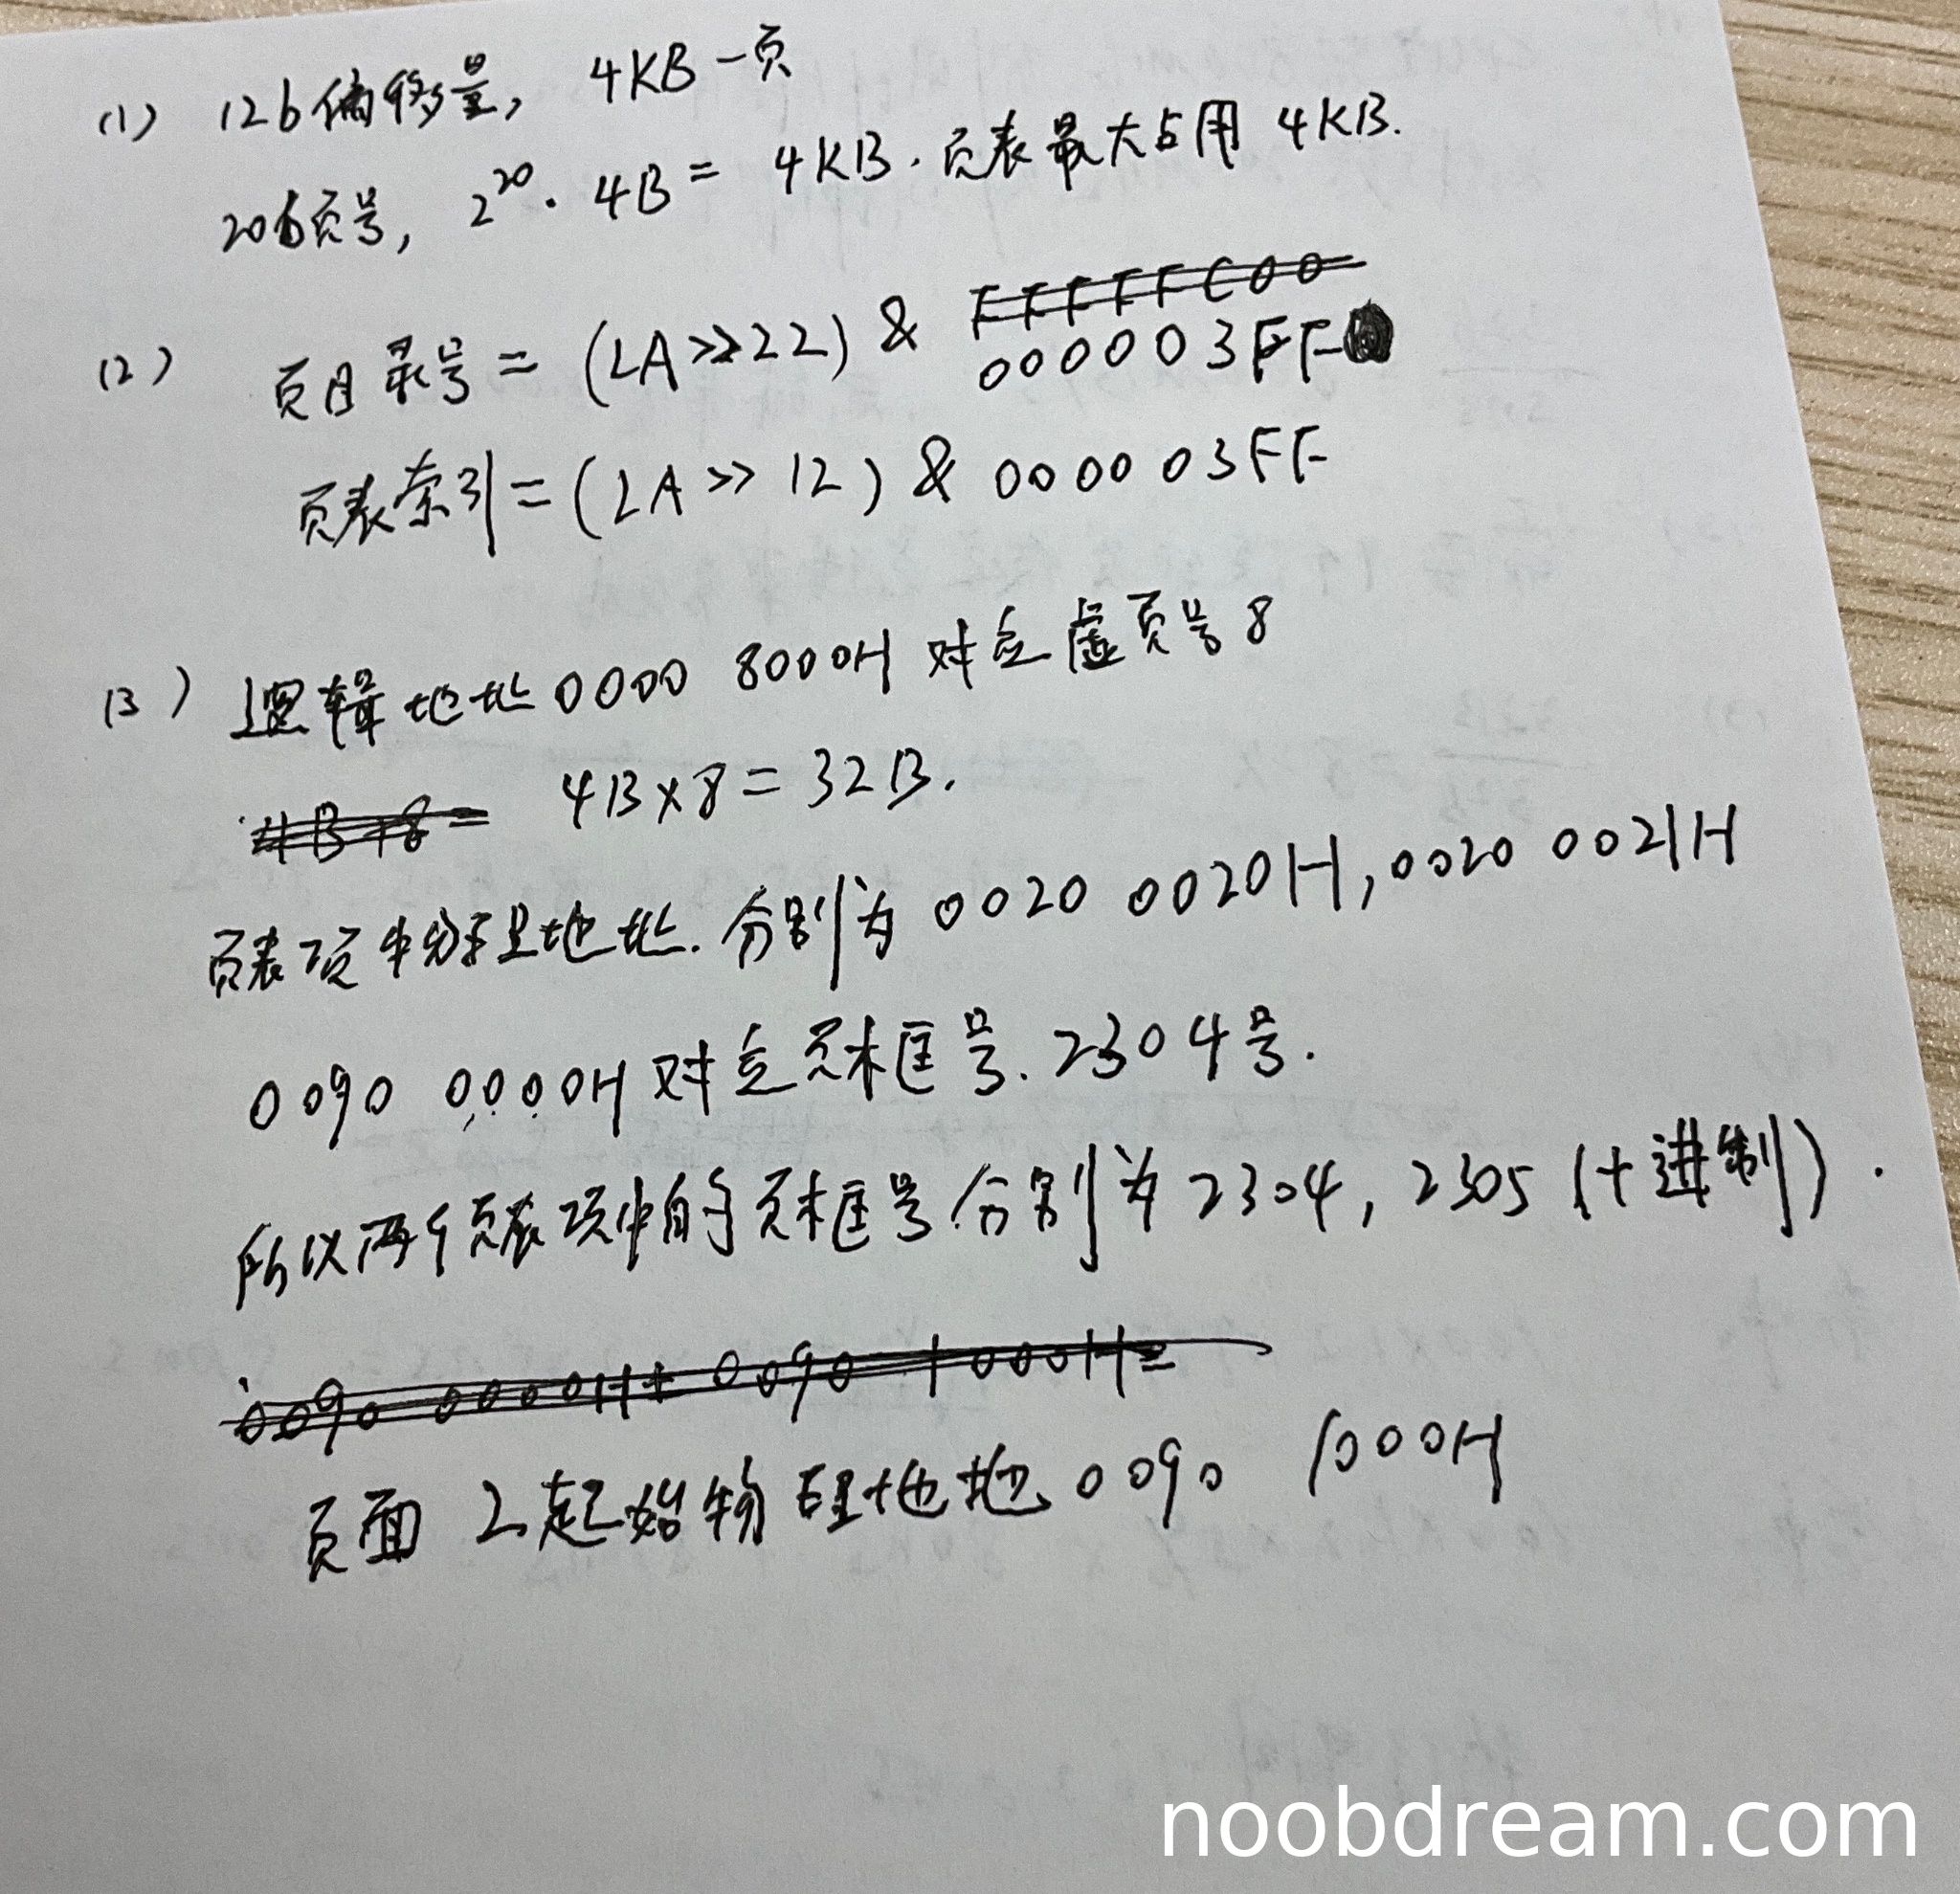 (1) 12b偏移量, 4KB一页
20b页号, 2^20 · 4B = 4KB. 页表最大占用 4KB.
(2) 页目录号 = (LA >> 22) & FFFFFC00
000003FF
页表索引 = (LA >> 12) & 000003FF
(3) 逻辑地址 0000 8000H 对应虚页号 8
4B+8= 4B×8 = 32B.
页表项中物理地址. 分别为 0020 0020H, 0020 0021H
0090 0000H 对应页框号. 2304号.
所以两个页表项中的页框号分别为 2304, 2305 (十进制).
0090 0000H+ 0090 1000H=
页面 2 起始物理地址 0090 1000H
noobdream.com